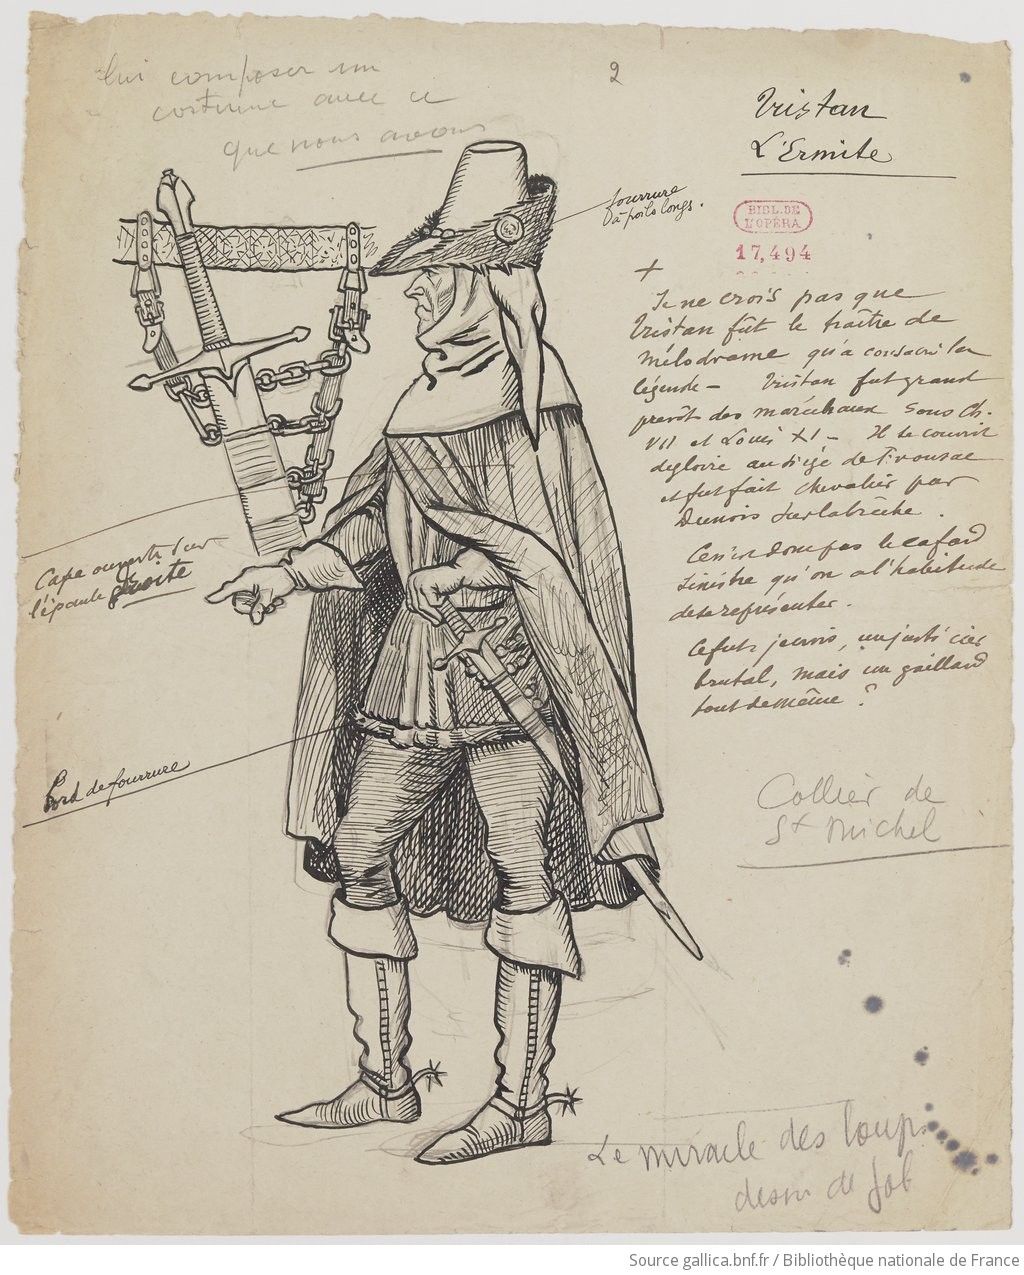 lui composer un
costume avec ce
que nous avons
2
Tristan
L'Ermite
fourrure
à poils longs.
BIBL. DE
L'OPÉRA
17,494
+
Je ne crois pas que
Tristan fût le traître de
Mélodrame qu'a consacré la
légende - Tristan fut grand
prevôt des maréchaux sous Ch.
VII et Louis XI - Il se couvrit
de gloire au siège de Fronsac
et fut fait chevalier par
Dunois sur la brèche.
Ce n'est donc pas le cafard
sinistre qu'on a l'habitude
de se représenter.
Ce fut, je crois, un justicier
brutal, mais un gaillard
tout de même ?
Cape ouverte sur
l'épaule droite
Bord de fourrure
Collier de
St Michel
Le miracle des loups
dessin de Job
Source gallica.bnf.fr / Bibliothèque nationale de France